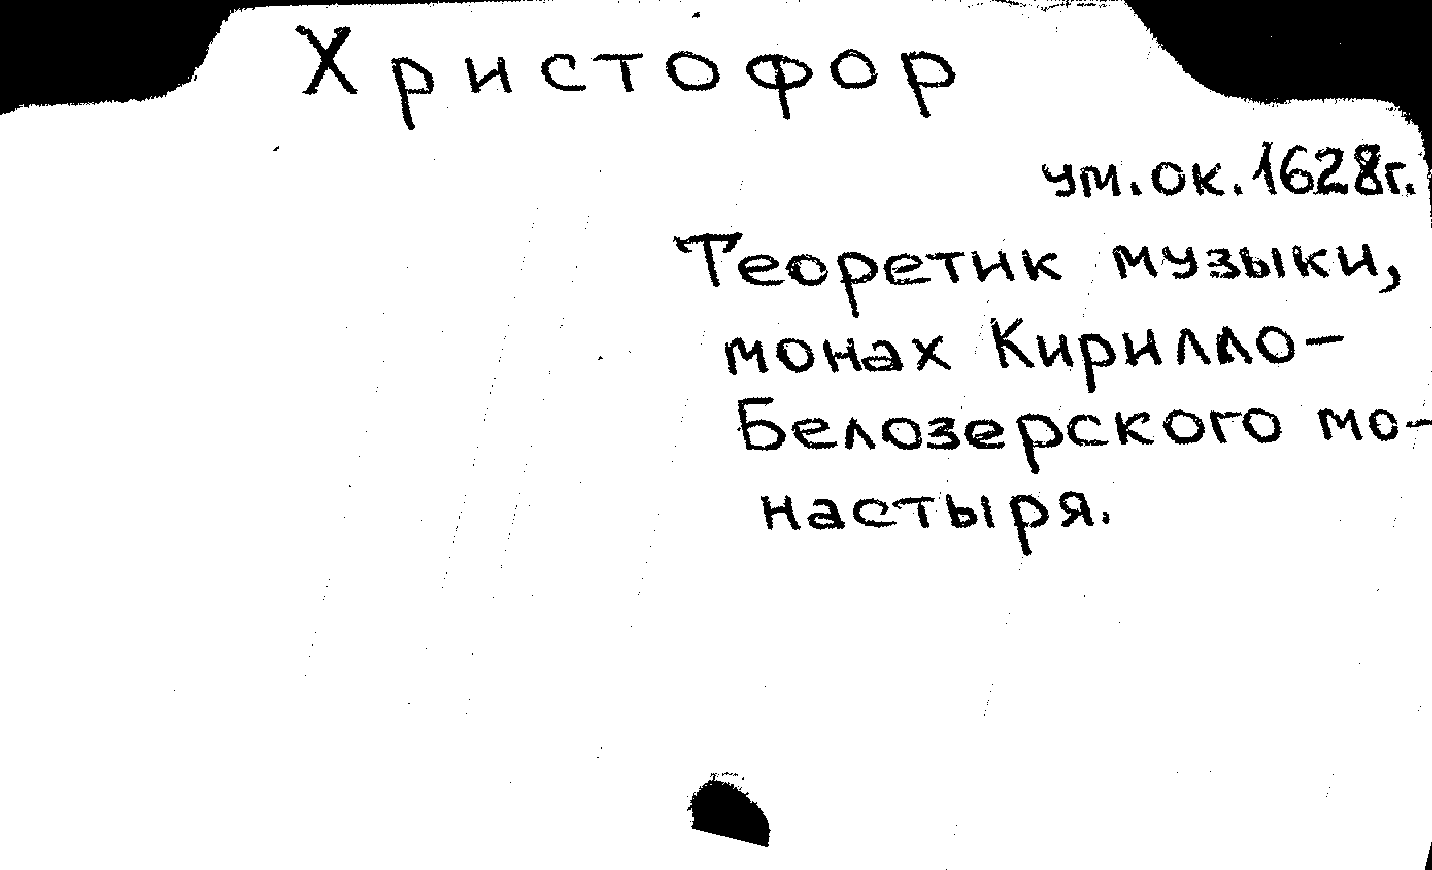 Христофор
ум.ок.1628г.
Теоретик музыки,
монах Кирилло-
Белозерского мо-
настыря.